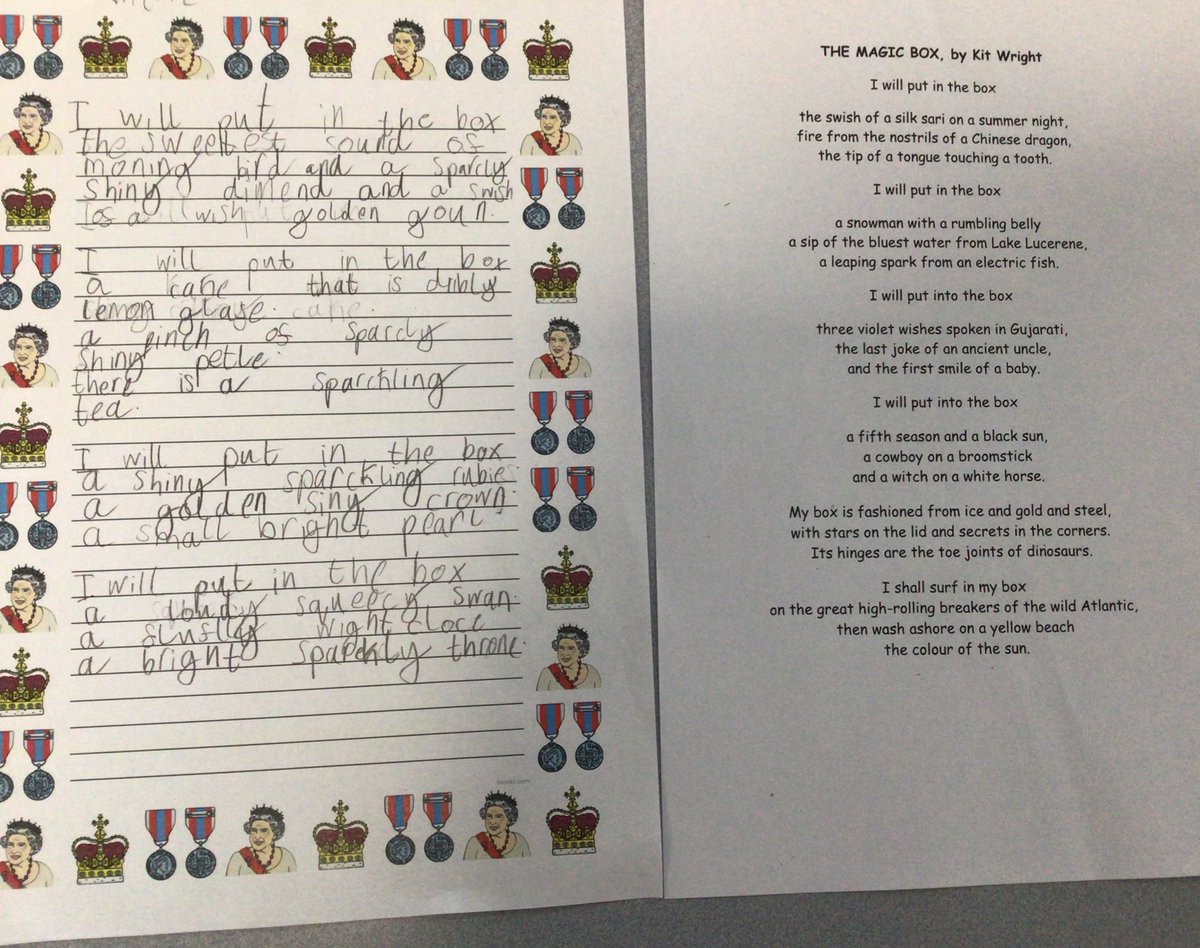 I will put in the box
the sweetest sound of
moning bird and a sparcly
shiny dimend and a swish
wish golden goun.
I will put in the box
a cane that is dribly
lemon glaye.
a pinch of sparcly
shiny petle.
there is a sparckling
tea.
I will put in the box
a shiny sparckling rubie
a golden siny crown.
a small bright pearl
I will put in the box
a swan.
a
a bright sparckly throne.
THE MAGIC BOX, by Kit Wright
I will put in the box
the swish of a silk sari on a summer night,
fire from the nostrils of a Chinese dragon,
the tip of a tongue touching a tooth.
I will put in the box
a snowman with a rumbling belly
a sip of the bluest water from Lake Lucerene,
a leaping spark from an electric fish.
I will put into the box
three violet wishes spoken in Gujarati,
the last joke of an ancient uncle,
and the first smile of a baby.
I will put into the box
a fifth season and a black sun,
a cowboy on a broomstick
and a witch on a white horse.
My box is fashioned from ice and gold and steel,
with stars on the lid and secrets in the corners.
Its hinges are the toe joints of dinosaurs.
I shall surf in my box
on the great high-rolling breakers of the wild Atlantic,
then wash ashore on a yellow beach
the colour of the sun.